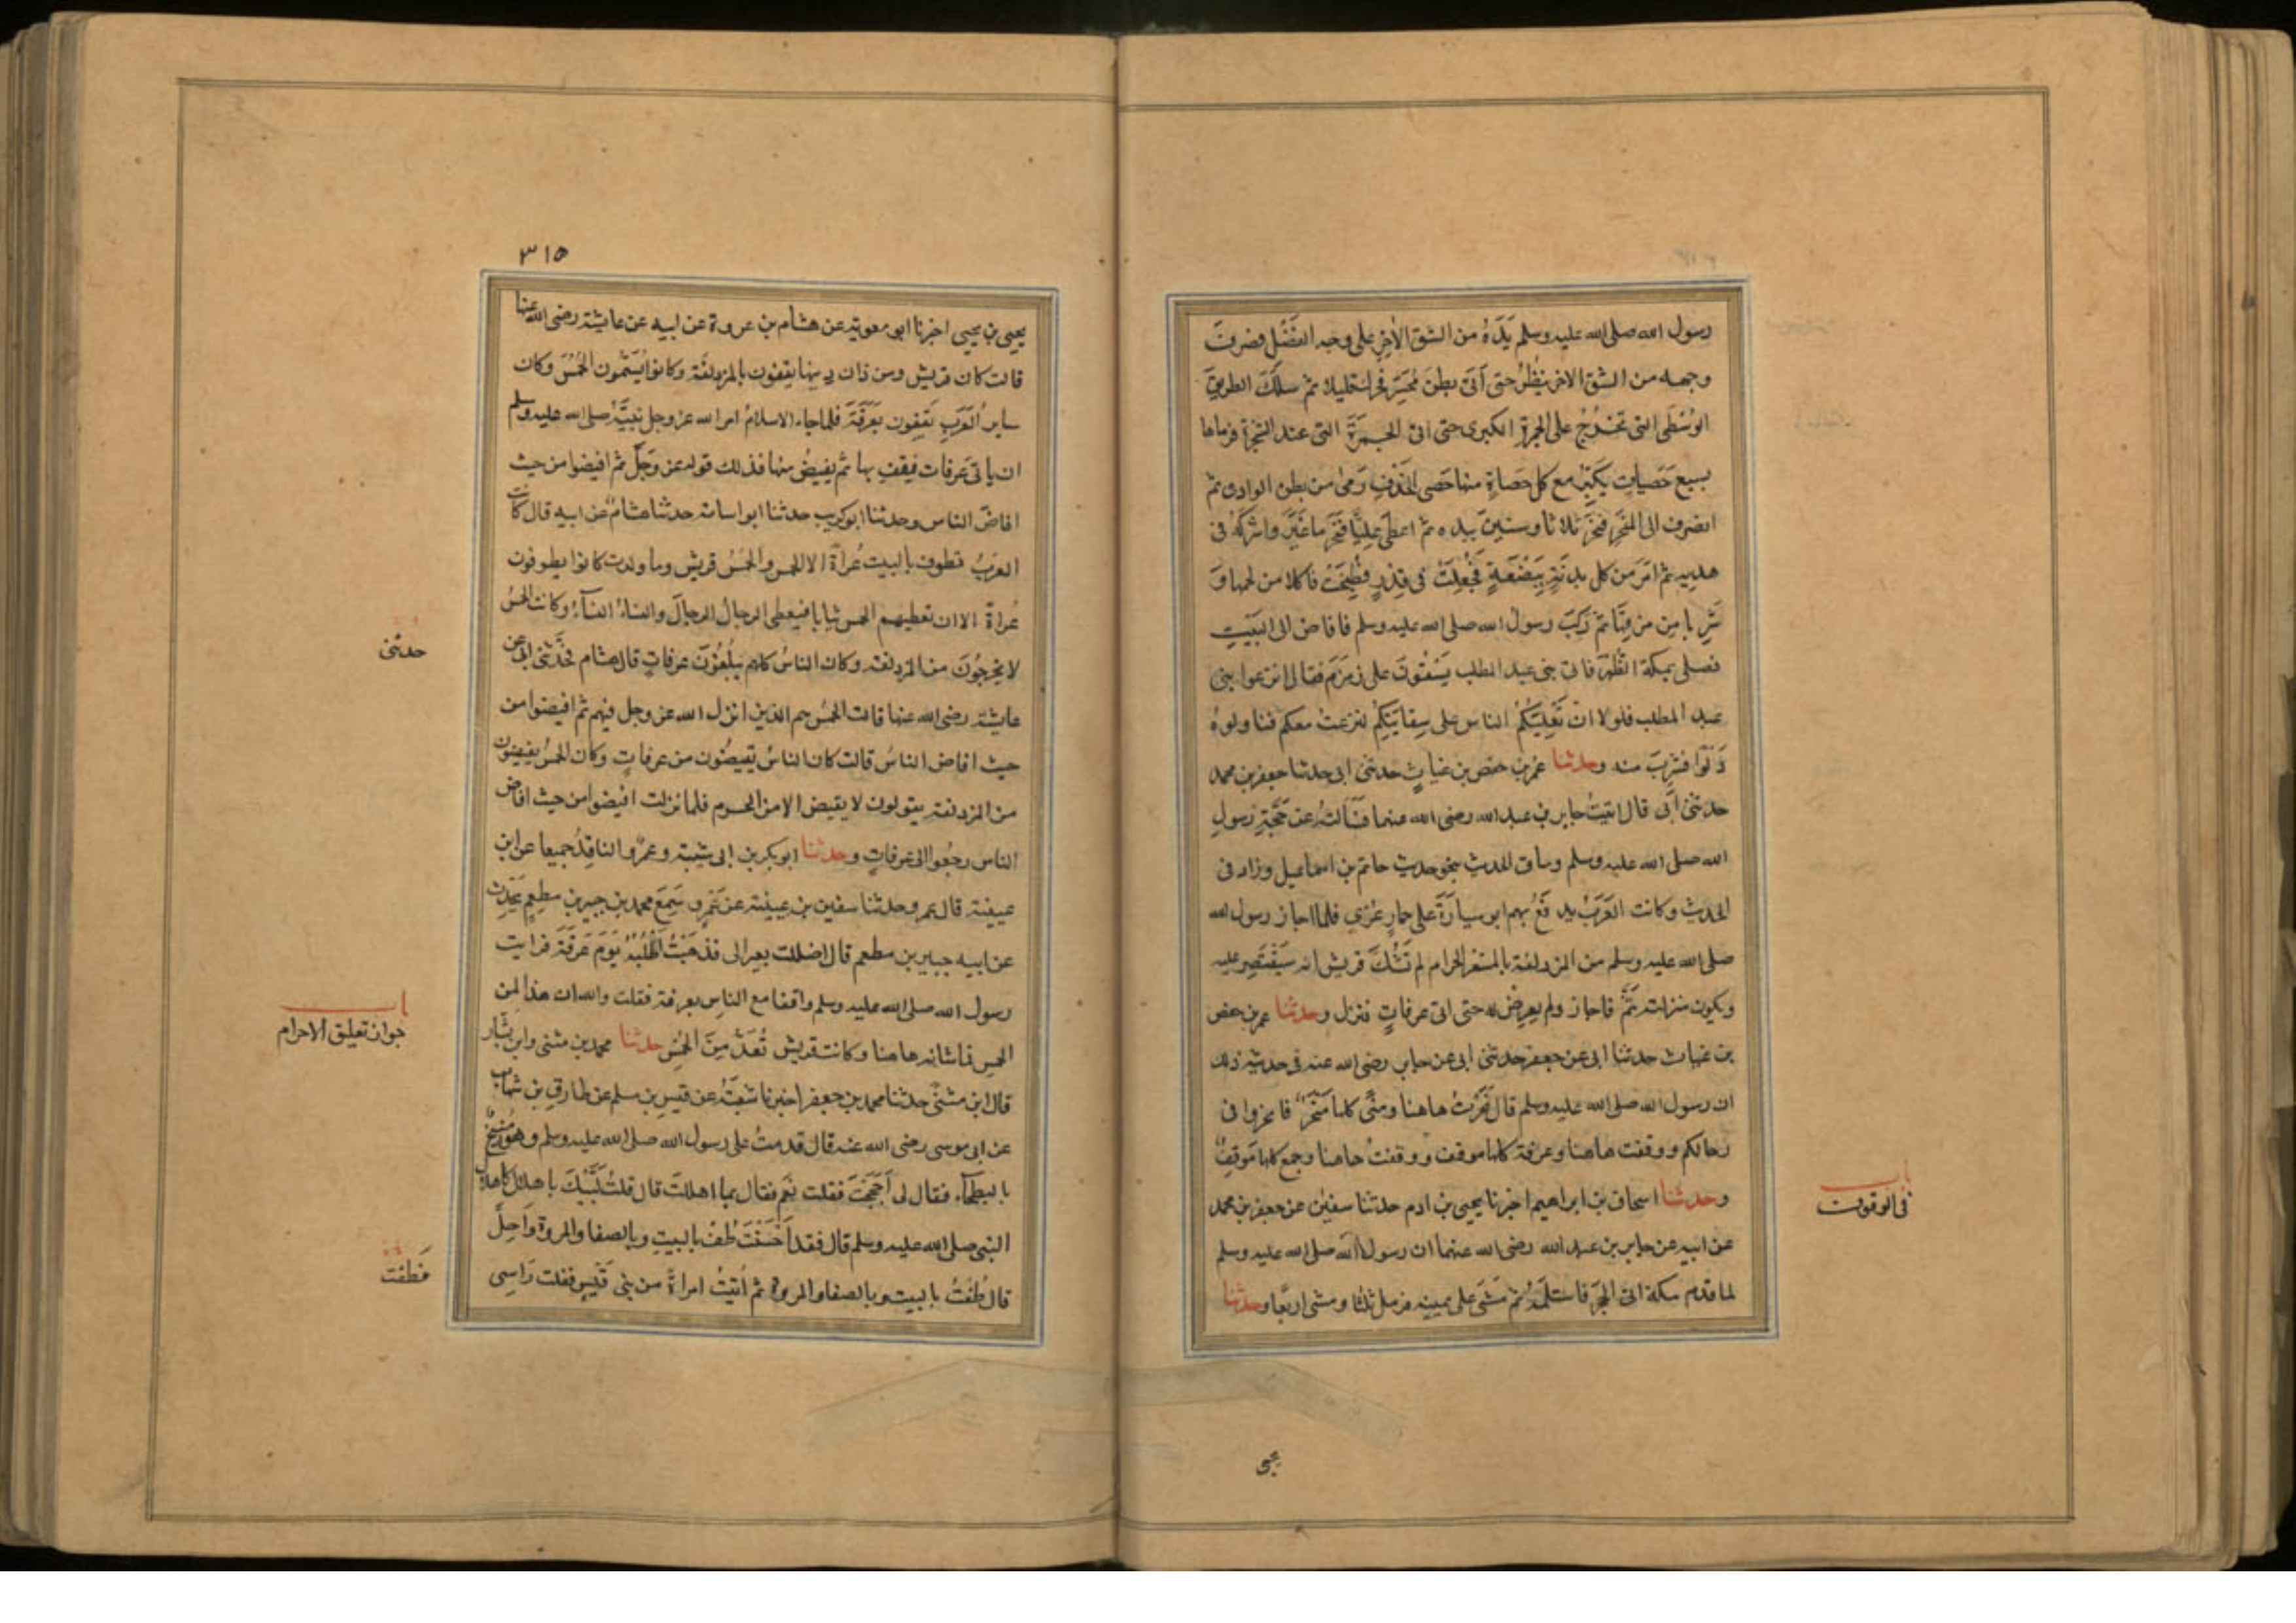 رسول الله صلى الله عليه وسلم يَدَهُ من الشق الآخر على وجه الفَضْل فصرف
وجهه من الشق الاخر ينظُرُ حتى أتى بطنَ مُحَسِّر فحرك قليلا ثم سلَكَ الطريقَ
الوُسْطَى التي تَخْرُجُ على الجمرة الكبرى حتى اتى الجَمْرَةَ التي عند الشجرة فرماها
بسبع حَصَياتٍ يكَبِّرُ مع كل حَصاةٍ منها حَصَى الخَذْفِ رَمَى من بطن الوادى ثم
انصرف الى المَنْحَرِ فنحَرَ ثلاثا وستين بيده ثم اعطى عليًّا فنَحَرَ ما غَبَرَ واشركَهُ في
هديه ثم امَرَ من كل بدنَةٍ بِبَضْعَةٍ فجُعِلَتْ في قِدْرٍ فطُبِخَتْ فاكلا من لحمها وَ
شَرِبا مِن مرقِها ثم رَكِبَ رسول الله صلى الله عليه وسلم فافاض الى البَيْتِ
فصلى بمكة الظُّهْرَ فاتى بني عبد المطلب يَسْقُونَ على زَمْزَمَ فقال انزعوا بني
عبد المطلب فلولا ان تَغْلِبَكُمُ الناس على سِقايَتِكم لنزعتُ معكم فناولوهُ
دَلْوًا فشَرِبَ منه وحدثنا عمَرُ بن حفص بن غياثٍ حدثني ابى حدثنا جعفر بن محمد
حدثني أبى قال اتيتُ جابر بن عبد الله رضى الله عنهما فسَألتُهُ عن حَجَّةِ رسولِ
الله صلى الله عليه وسلم وساق الحديث بنحو حديث حاتم بن اسماعيل وزاد في
الحديث وكانت العَرَبُ يدفَعُ بهم ابو سيارَةَ على حمارٍ عُرْيٍ فلما اجاز رسول الله
صلى الله عليه وسلم من المزدلفة بالمشعر الحرام لم تَشُكَّ قريش انه سَيَقْتَصِرُ عليه
ويكون منزلته ثَمَّ فاجاز ولم يعرِضْ له حتى اتى عرفاتٍ فنزل وحدثنا عمر بن حفص
بن غياث حدثنا ابى عن جعفر حدثني ابى عن جابر رضى الله عنه في حديثه ذلك
ان رسول الله صلى الله عليه وسلم قال نَحَرْتُ هاهنا ومِنًى كلها مَنْحَرٌ فانحروا في
رحالكم ووقفت هاهنا وعرفة كلها موقف ووقفتُ هاهنا وجمع كلها مَوقِفٌ
وحدثنا اسحاق بن ابراهيم اخبرنا يحيى بن ادم حدثنا سفيٰن عن جعفر بن محمد
عن ابيه عن جابر بن عبد الله رضى الله عنهما ان رسول الله صلى الله عليه وسلم
لما قدم مكة اتى الحجَرَ فاستلَمَهُ ثم مَشَى على يمينه فرمل ثلاثا ومشى اربعًا وحدثنا
باب
في الوقوف
يحيى
٣١٥
يحيى بن يحيى اخبرنا ابو معوية عن هشام بن عروة عن ابيه عن عايشة رضى الله عنها
قالت كان قريش ومن دان دينها يقفون بالمزدلفَة وكانوا يُسَمَّون الحُمْسَ وكان
سايرُ العَرَبِ يَقِفون بعَرَفَةَ فلما جاء الاسلامُ امر الله عز وجل نبيَّهُ صلى الله عليه وسلم
ان ياتى عَرفات فيقف بها ثم يفيضُ منها فذلك قوله عز وَجَلَّ ثم افيضوا من حيث
افاضَ الناس وحدثنا ابو كريب حدثنا ابو اسامة حدثنا هشامٌ عن ابيه قال كانت
العرَبُ تطوف بالبيت عُراةً الا الحمس والحُمْسُ قريش وما ولدت كانوا يطوفون
عُراةً الا ان تعطيهم الحمس ثيابا فيعطى الرجالُ الرجالَ والنساءُ النسآءَ وكانت الحُمْسُ
لا يخرجُونَ من المزدلفة وكان الناسُ كلهم يبلُغُونَ عرفاتٍ قال هشام فحَدَّثنى ابى عن
عايشة رضى الله عنها قالت الحُمْسُ هم الذين انزل الله عز وجل فيهم ثم افيضوا من
حيث افاض الناسُ قالت كان الناسُ يُفِيضُون من عرفاتٍ وكان الحمْسُ يفيضون
من المزدلفة يقولون لا يفيض الا من الحرم فلما نزلت افيضوا من حيث افاض
الناس رجَعُوا الى عَرفاتٍ وحدثنا ابو بكر بن ابى شيبة وعمرٌو الناقِدُ جميعا عن ابن
عيينة قال عمرو حدثنا سفين بن عيينة عن عَمْرٍو سَمِعَ محمد بن جبير بن مطعِمٍ يُحَدِّثُ
عن ابيه جبير بن مطعم قال اضللت بعيرا لى فذهَبْتُ اَطْلُبُهُ يَوْمَ عَرَفَةَ فرايت
رسول الله صلى الله عليه وسلم واقفا مع الناسِ بعرفة فقلت والله ان هذا لمن
الحمس فما شانه هاهنا وكانت قريش تُعَدُّ مِنَ الحُمْسِ حدثنا محمد بن مثنى وابن بشار
قال ابن مثنّى حدثنا محمد بن جعفر اخبرنا شعبَةُ عن قيس بن مسلم عن طارق بن شهاب
عن ابى موسى رضى الله عنه قال قدمتُ على رسول الله صلى الله عليه وسلم وهُوَ مُنِيخٌ
بالبطحآء فقال لى اَحَجَجْتَ فقلت نعَم فقال بما اهللت قال قلتُ لَبَّيْكَ باهلال كاهلال
النبى صلى الله عليه وسلم قال فقد اَحْسَنْتَ طُفْ بالبيتِ وبالصفا والمروة وَاَحِلَّ
قال طُفْتُ بالبيت وبالصفا والمروة ثم أتيتُ امراةً من بنى قَيْسٍ ففلت رَاسِى
حدثنى
باب
جواز تعليق الاحرام
فَطفت